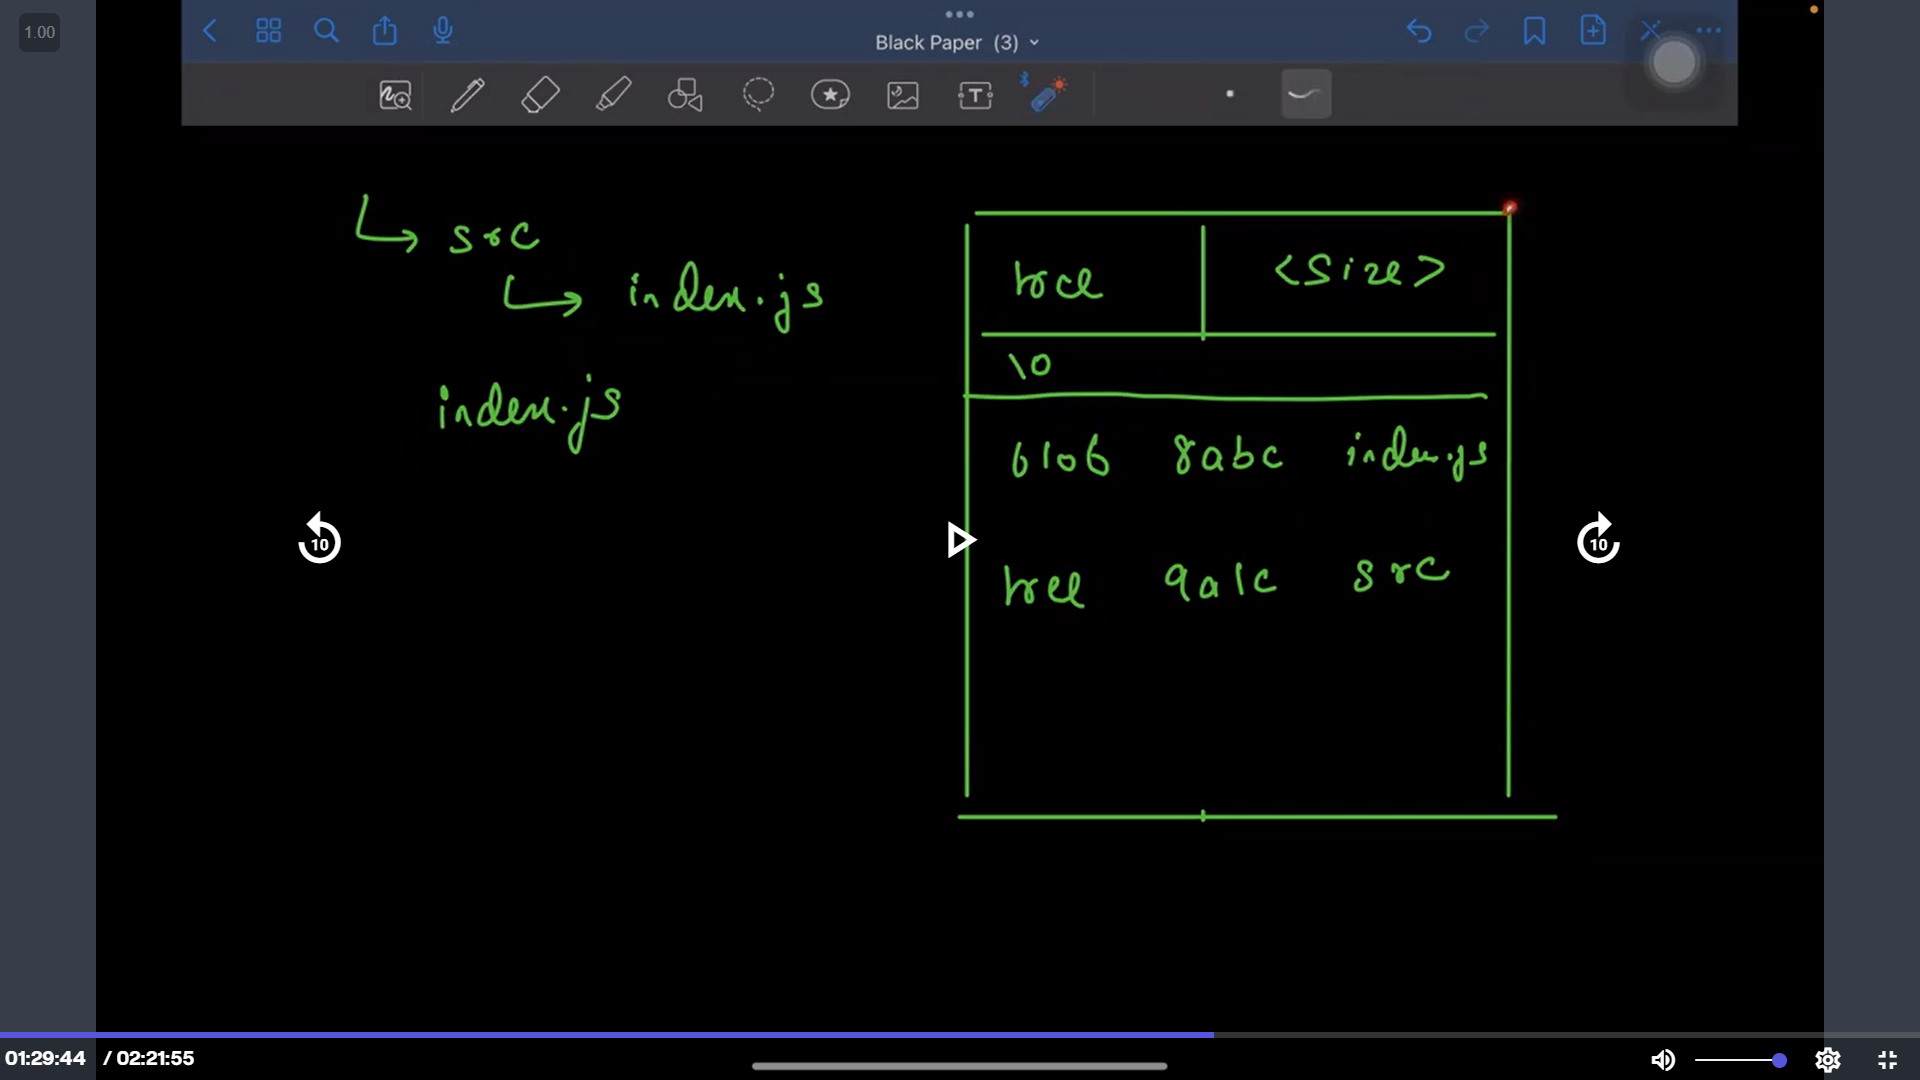 1.00
Black Paper (3)
T
src
index.js
index.js
tree <size>
\0
blob 8abc index.js
tree 9a1c src
10
10
01:29:44 / 02:21:55